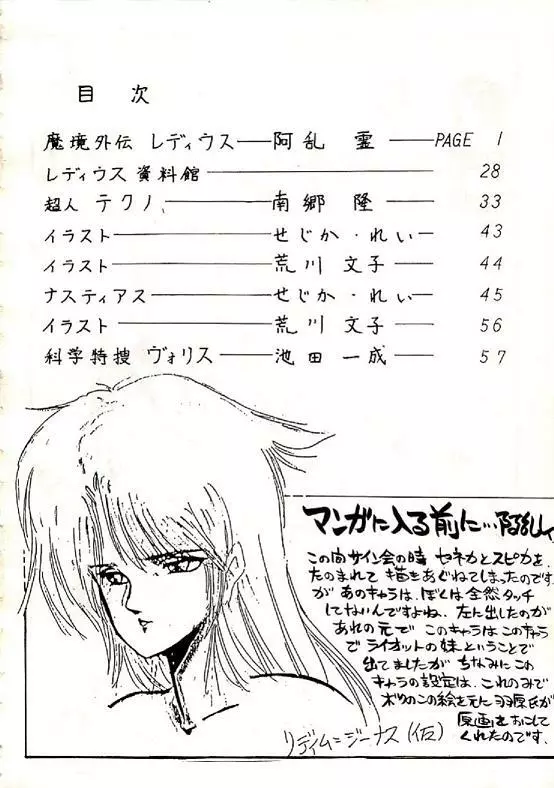 目 次
魔境外伝 レディウス 阿乱 霊 PAGE 1
レディウス資料館 28
超人 テクノ 南郷 隆 33
イラスト せじか・れい 43
イラスト 荒川 文子 44
ナスティアス せじか・れい 45
イラスト 荒川 文子 56
科学特捜 ヴォリス 池田 一成 57
マンガに入る前に…阿乱レイ
この向サイン会の時 セネカとスピカを
たのまれて 描きあぐねてしまったのです
が あのキャラは、ぼくは全然タッチ
してないんですよね、左に出したのが
あれの元で このキャラは このキャラ
で ライオットの妹ということで
出てましたが ちなみにこの
キャラの設定は、これのみで
ボクのこの絵を元に羽原氏が
原画をおこして
くれたのです。
リディム=ジーナス(仮)